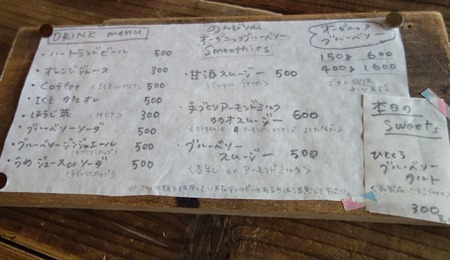 DRINK menu
・ハートランドビール 500
・オレンジジュース 300
・Coffee (ICE or HOT) 300
・ICE カフェオレ 500
・ほうじ茶 (HOT) 300
・ブルーベリーソーダ 500
・ブルーベリージンジャエール 500
・うめジュース or ソーダ 500
オーガニックブルーベリー
Smoothies
・甘酒スムージー 500
・手づくりアーモンドミルク
カカオスムージー 600
・ブルーベリー
スムージー 500
<豆乳 or アーモンドミルク>
オーガニック
ブルーベリー
150g 600
400g 1600
本日の
Sweets
ひとくち
ブルーベリー
タルト
300